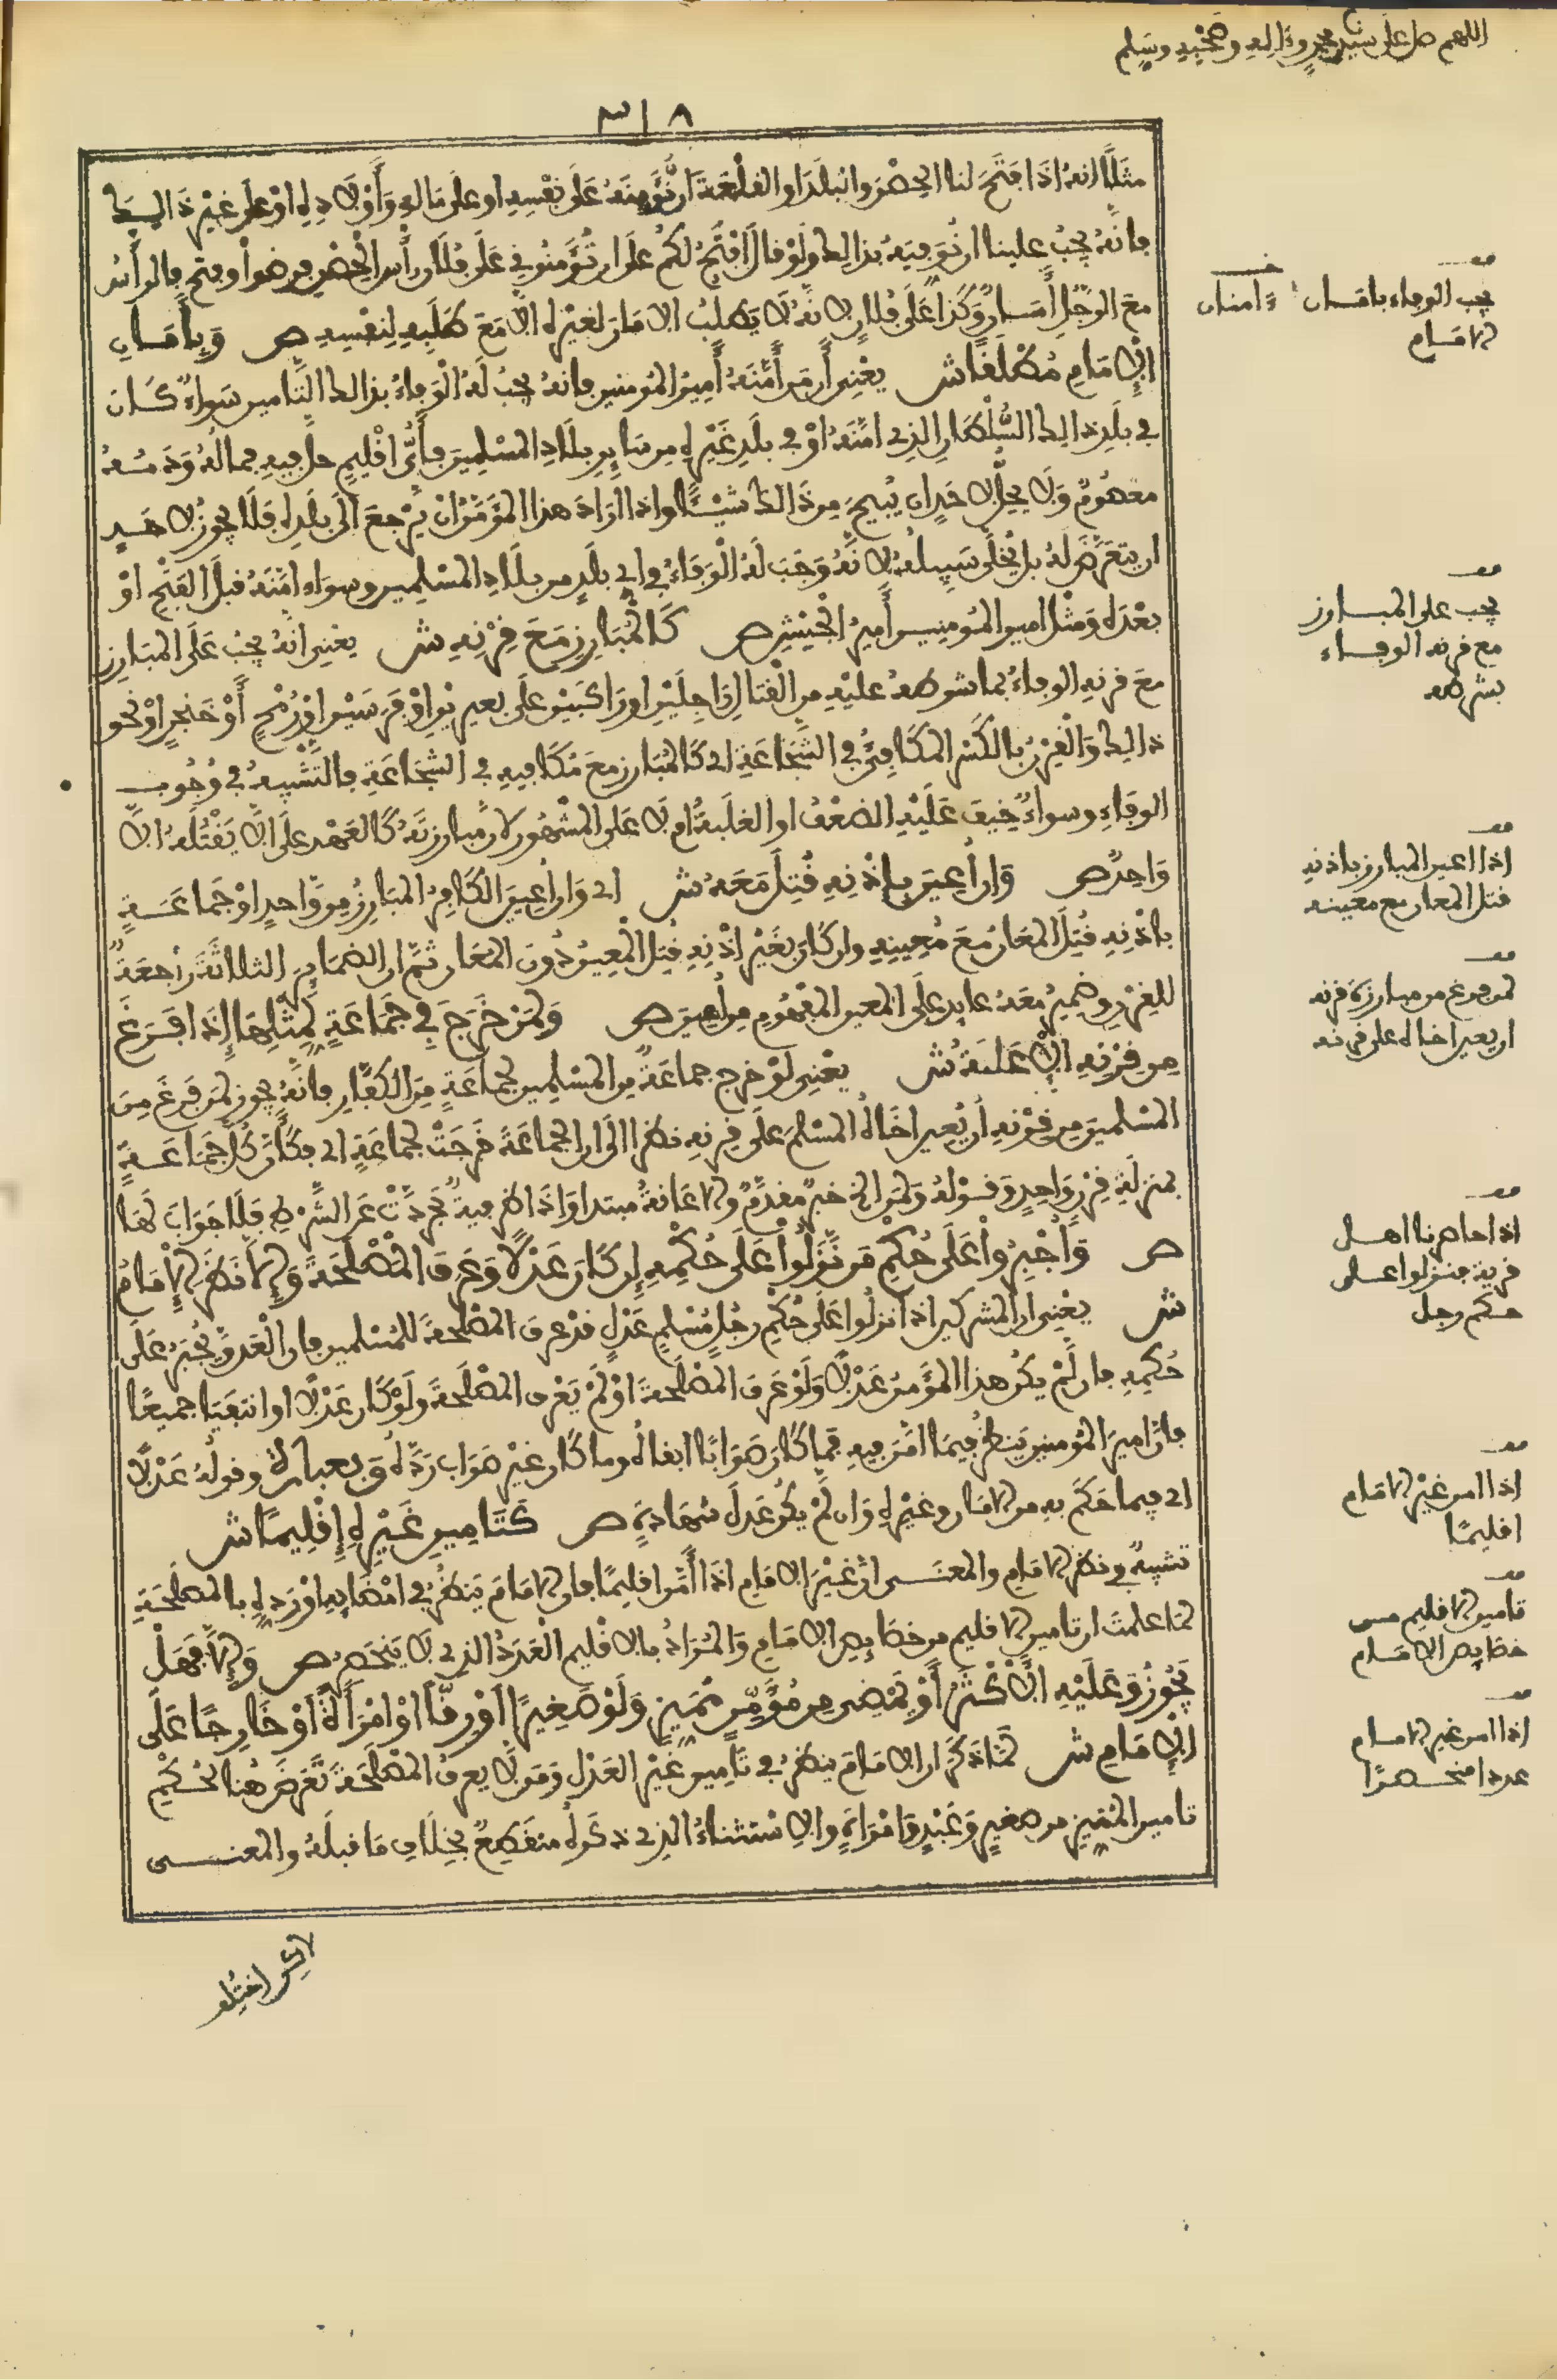 اللهم صل على سيدنا محمد وءاله وصحبه وسلم
٣١٨
مثلا انه اذا فتح لنا الحصن او البلد او القلعة ان نؤمنه على نفسه او على ماله واولاده او على غير ذالك
فانه يجب علينا ان نوفيه بذالك ولو قال افتح لكم على ان تؤمنوني على فلان رأس الحصن فرضوا وفتح فالرأس
مع الرجل ءامنان وكذا على فلان لانه لا يطلب الامان لغيره الا مع طلبه لنفسه ص وبأمان
الإمام مطلقا ش يعني أن من أمنه أمير المومنين فانه يجب له الوفاء بذالك التامين سواء كان
في بلد ذالك السلطان الذي امنه او في بلد غيره من ساير بلاد المسلمين فبأي اقليم حل فيه فماله ودمه
معصوم ولا يحل لاحد ان يبيح من ذالك شيئا واذا اراد هذا المؤمن ان يرجع الى بلده فلا يجوز لاحد
ان يتعرض له بل يخلى سبيله لانه وجب له الوفاء في اي بلد من بلاد المسلمين وسواء امنه قبل الفتح او
بعده ومثل امير المومنين أمير الجيش ص كالمبارز مع قرنه ش يعني انه يجب على المبارز
مع قرنه الوفاء بما شرطه عليه من القتال راجلين او راكبين على بعيرين او فرسين او رمح أو خنجر او نحو
ذالك والقرن بالكسر المكافئ في الشجاعة اي كالمبارز مع مكافيه في الشجاعة فالتشبيه في وجوب
الوفاء وسواء خيف عليه الضعف او الغلبة ام لا على المشهور لان مبارزته كالعهد على الا يقتله الا
واحد ص وإن أعين بإذنه قتل معه ش اي وان اعين الكافر المبارز من واحد او جماعة
باذنه قتل المعان مع معينه وان كان بغير اذنه قتل المعين دون المعان ثم ان الضماير الثلاثة راجعة
للقرن وضمير معه عايد على المعين المفهوم من أعين ص ولمن خرج في جماعة لمثلها إذا فرغ
من قرنه الإعانة ش يعني لو خرج جماعة من المسلمين لجماعة من الكفار فانه يجوز لمن فرغ من
المسلمين من قرنه أن يعين اخاه المسلم على قرنه نظرا الى ان الجماعة خرجت لجماعة اي فكأن كل جماعة
بمنزلة قرن واحد وقوله ولمن الخ خبر مقدم والاعانة مبتدا واذا ظرفية تجردت عن الشرط فلا جواب لها
ص وأجبروا على حكم من نزلوا على حكمه إن كان عدلا وعرف المصلحة وإلا نظر الإمام
ش يعني ان المشركين اذا نزلوا على حكم رجل مسلم عدل قد عرف المصلحة للمسلمين فان العدو يجبر على
حكمه فان لم يكن هذا المؤمن عدلا ولو عرف المصلحة او لم يعرف المصلحة ولو كان عدلا او انتفيا جميعا
فان امير المومنين ينظر فيما امن فيه فما كان صوابا ابقاه وما كان غير صواب رده وبعبارة وقوله عدلا
اي فيما حكم به من الامان وغيره وان لم يكن عدل شهادة ص كتامين غيره إقليما ش
تشبيه في نظر الامام والمعنى ان غير الامام اذا أمن اقليما فان الامام ينظر في امضايه او رده بالمصلحة
لما علمت ان تامين الاقليم من خصايص الامام والمراد بالاقليم العدد الذي لا ينحصر ص وإلا فهل
يجوز وعليه الأكثر أو يمضى من مؤمن مميز ولو صغيرا أو رقا أو امرأة أو خارجا على
الإمام ش لما ذكر ان الامام ينظر في تامين غير العدل ومن لا يعرف المصلحة تعرض هنا لحكم
تامين المميز من صغير وعبد وامراة والاستثناء الذي ذكره منقطع بخلاف ما قبله والمعنى
يجب الوفاء بامان
الامام
ءامنان
يجب على المبارز
مع قرنه الوفاء
بشرطه
اذا اعين المبارز باذنه
قتل المعان مع معينه
لمن فرغ من مبارزة قرنه
ان يعين اخاه على قرنه
اذا حاصرنا اهل
قرية فنزلوا على
حكم رجل
اذا امن غير الامام
اقليما
تامين الاقليم من
خصايص الامام
اذا امن غير الامام
عددا منحصرا